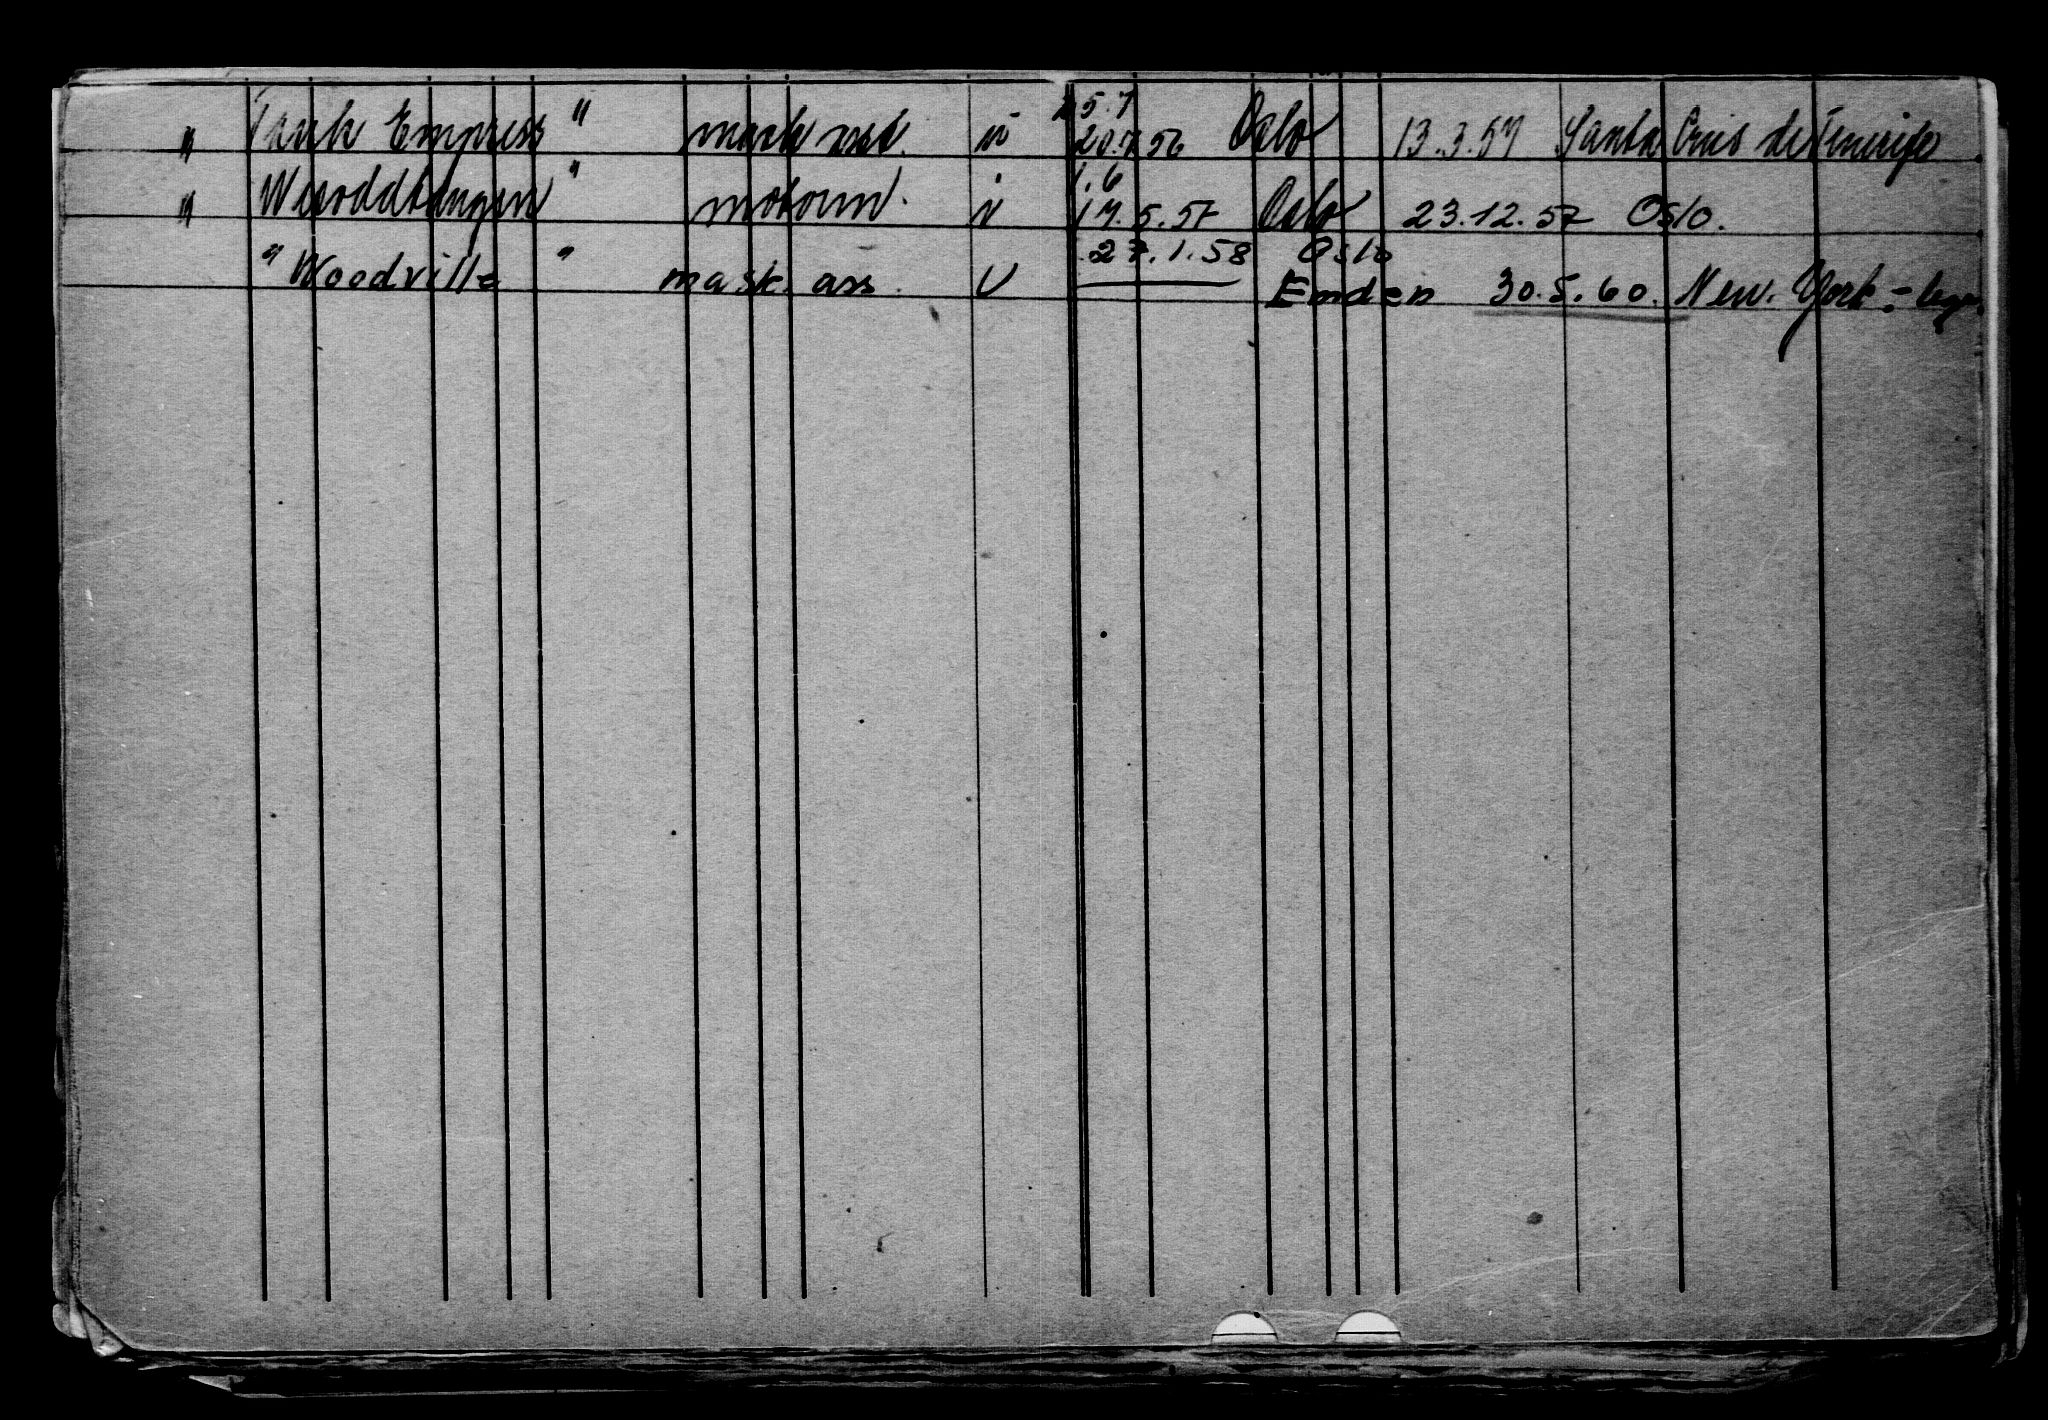 5.7
" Tank Empress " mask ass. u 20.7.56 Oslo 13.3.57 Santa Cruis de Tenerife
1.6
" " motorm. u 17.5.57 Oslo 23.12.57 Oslo.
27.1.58 Oslo
" Woodville " mask. ass. U Emden 30.5.60. New. York. -